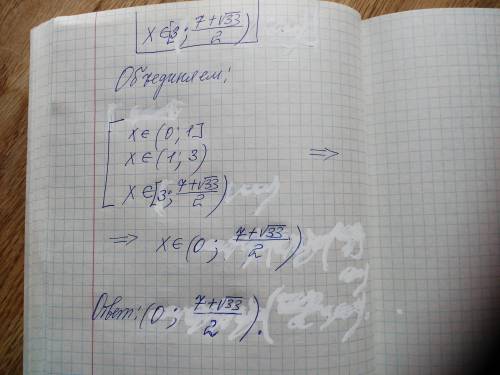 x∈[3; (7+√33)/2)
Объединяем:
[ x∈(0; 1]
x∈(1; 3) ⇒
x∈[3; (7+√33)/2)
⇒ x∈(0; (7+√33)/2)
Ответ: (0; (7+√33)/2).